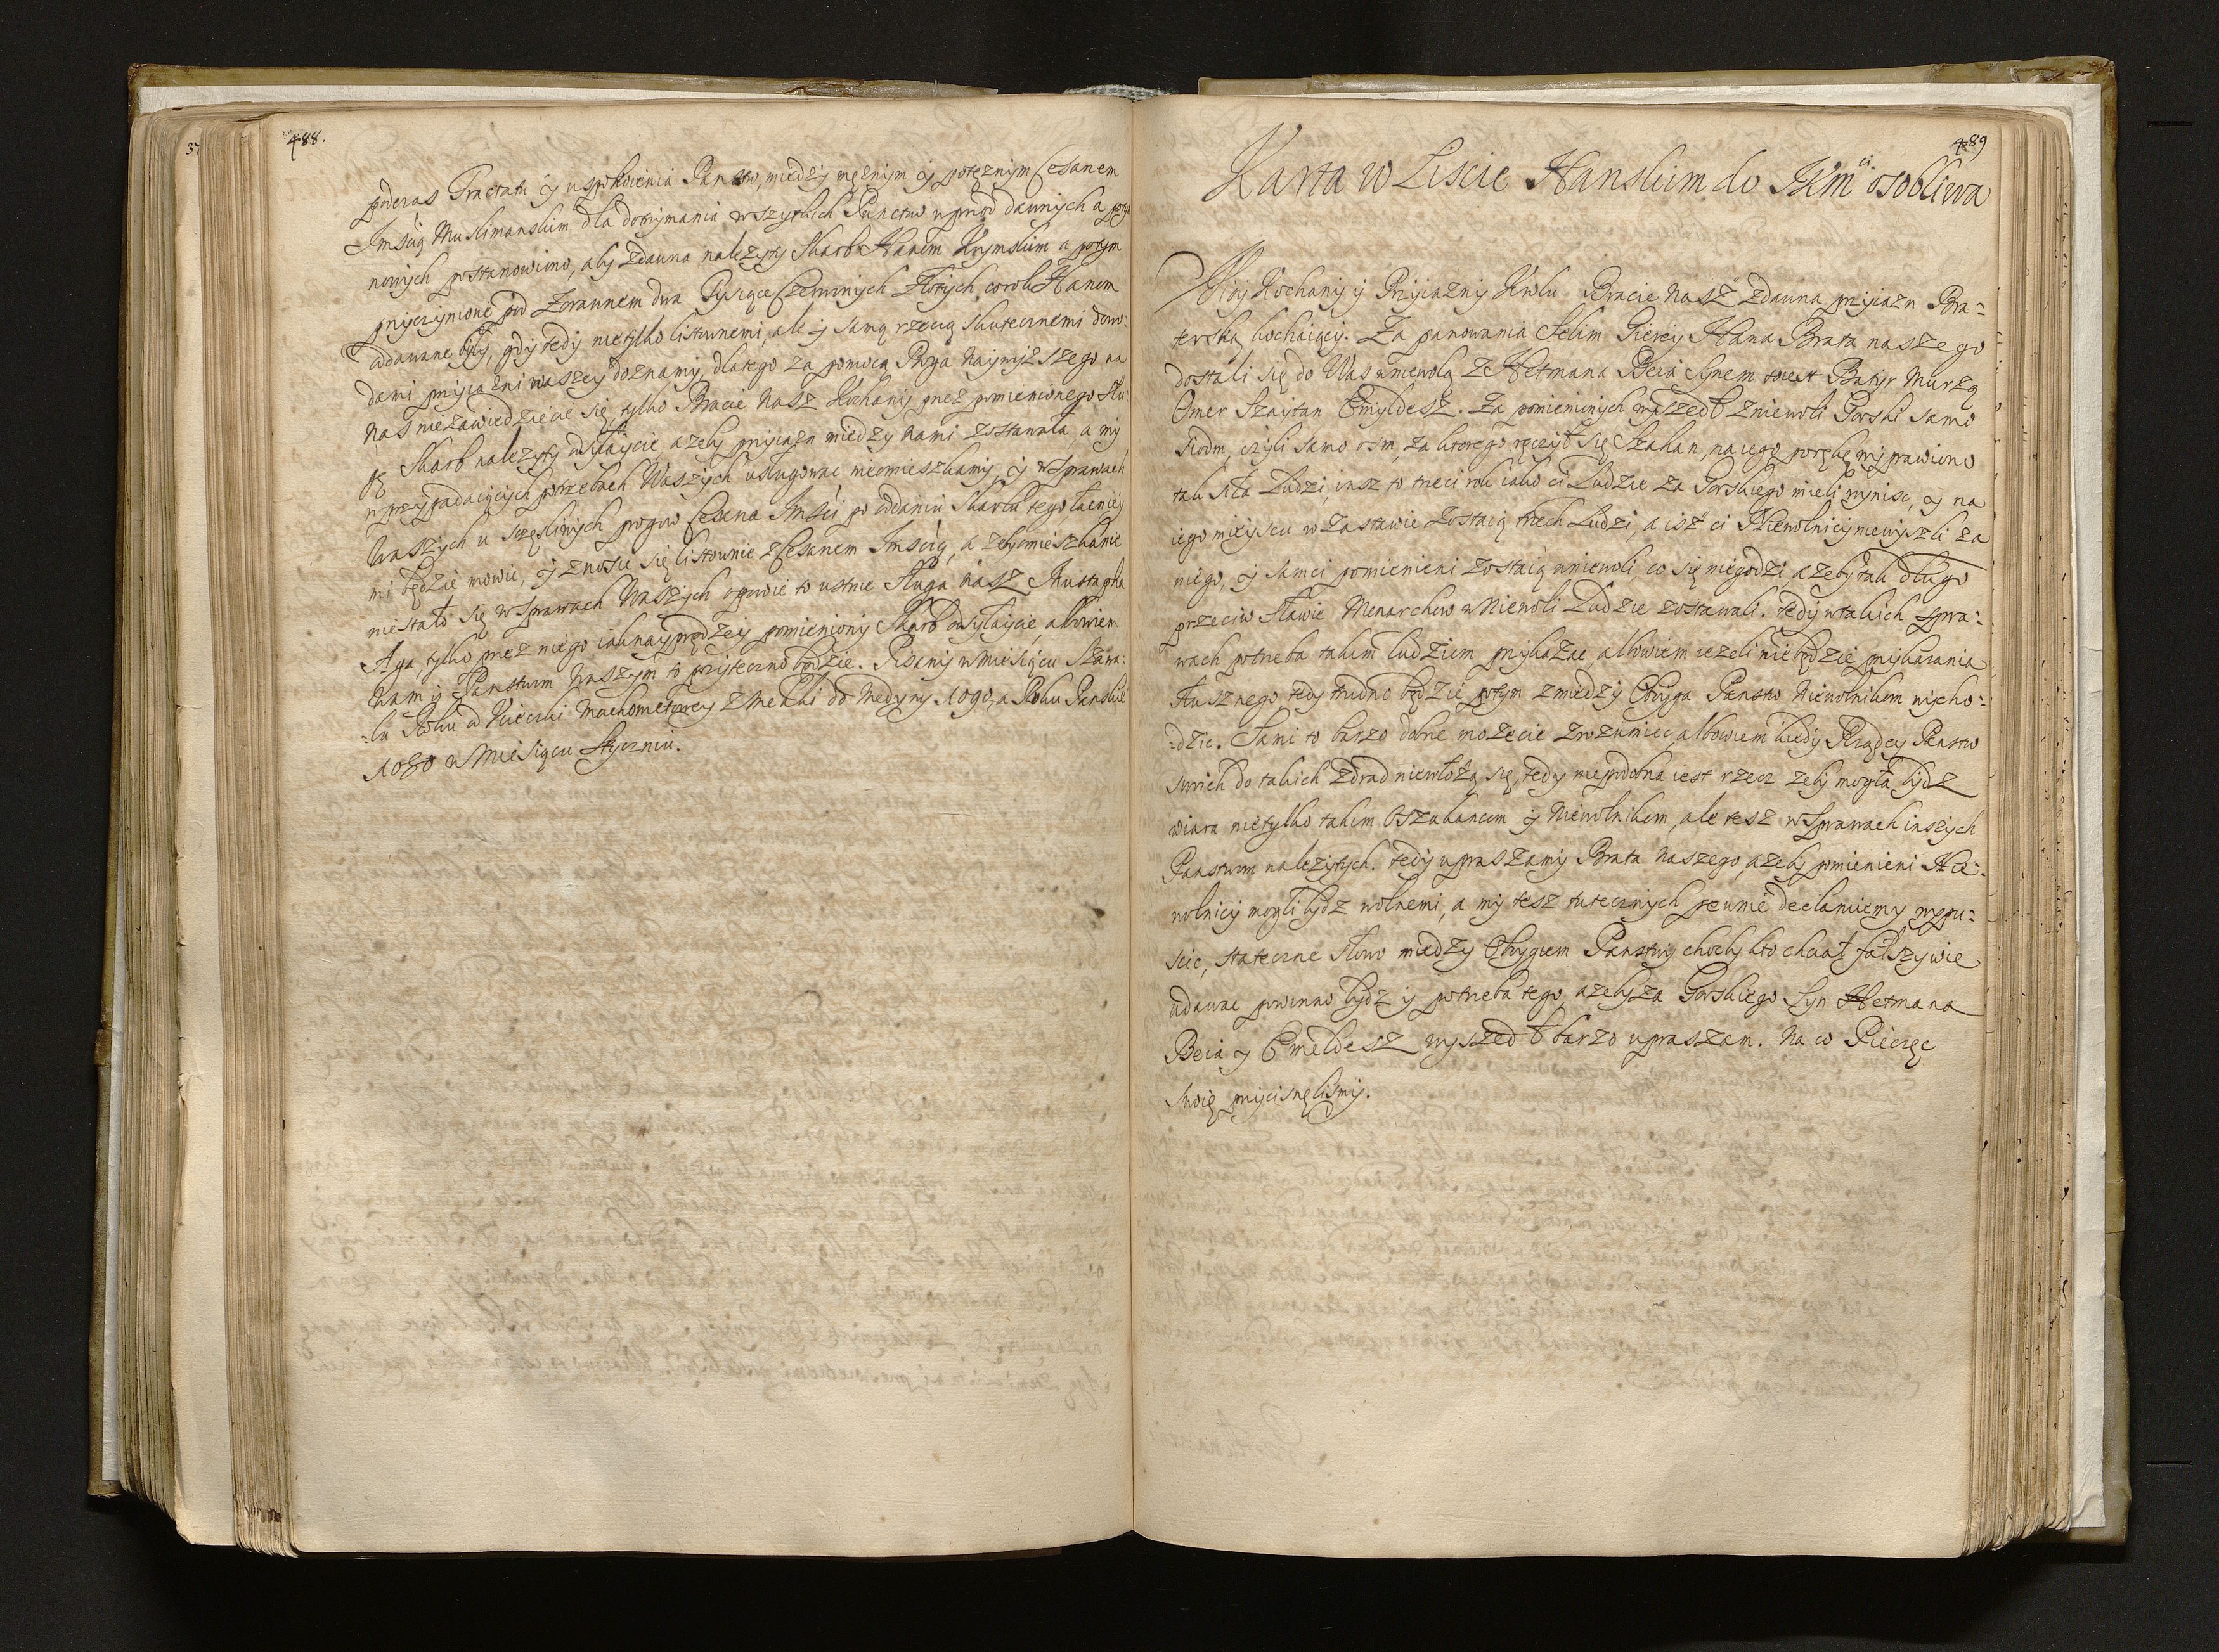 37
488.
podczas Tractatu y uspokoienia Panstw, miedzy męznym y poteznym Cesarzem
Imścią Muslimanskim dla dotrzymania wszytkich Punctow uprzod dawnych a potym
nowych postanowiono, aby zdawna nalezyty Skarb Hanom Krymskim a potym
przyczynione pod Zorawnem dwa Tysiące Czerwonych Złotych corok Hanom
oddawane były, gdy tedy nietylko listownemi, ale y samą rzeczą skutecznemi dowo:
dami przyiazni waszey doznamy, dlatego za pomocą Boga naywyzszego na
nas niezawiedziecie się, tylko Bracie nasz Kochany przez pomienionego Słu:
gę Skarb nalezyty odsyłaycie, azeby przyiazn miedzy nami zostawała, a my
w przypadaiących potrzebach Waszych usługowac nieomieszkamy, y w Sprawach
Waszych u scęsliwych progow Cesarza Imści po oddaniu Skarbu tego, łacniey
mi będzie mowic, y znosic się listownie z Cesarzem Imscią, a zebyomieszkanie
niestało się w Sprawach Waszych opowie to ustnie Sługa nasz Mustapha
Aga, tylko przez niego iaknayprędzey pomieniony Skarb odsyłaycie, albowiem
wam y Panstwom Waszym to pozyteczno będzie. Pisany w Miesiącu Szewa:
:lu Roku od Ucieczki Machometowey z Mekki do Medyny 1090, a Roku Panskie
1080 w Miesiącu Styczniu.
489
Karta w Liscie Hanskim do JKmci osobliwa
Moy Kochany y Przyiazny Krolu Bracie Nasz zdawna przyiazn Bra:
terską kochaiący. Za panowania Selim Gierey Hana Brata naszego
dostali się do Was w niewolą z Hetmana Beia Synem to iest Bakyr Murzą
Omer Szaytan Emyldesz. Za pomienionych wyszedł z niewoli Gorski samo
siodm, czyli samo osm, za ktorego ręczył się Szaban, na iego porękę wyprawiono
tak siła Ludzi, insz to trzeci rok iako ci Ludzie za Gorskiego mieli wynisc, y na
iego mieyscu w zastawie zostaią trzech Ludzi, a isz ci Niewolnicy niewyszli za
niego, y samci pomienieni zostaią w niewoli co się niegodzi, azeby tak długo
przeciw sławie Monarchow w Niewoli Ludzie zostawali. Tedy w takich Spra:
wach potrzeba takim ludziom przykazac, albowiem iezeli nie będzie przykazania
słusznego, tedy trudno będzie, potym z miedzy Oboyga Panstw Niewolnikom wycho:
:dzic. Sami to barzo dobrze mozecie zrozumiec, albowiem kiedy Rządcy Panstw
swoich do takich zdrad niewłozą się, tedy niepodobna iest rzecz zeby mogła bydz
wiara nietylko takim Oszukancom y Niewolnikom, ale tesz w Sprawach inszych
Panstwom nalezytych. Tedy upraszamy Brata naszego, azeby pomienieni Nie:
wolnicy mogli bydz wolnemi, a my tesz tutecznych pewnie declaruiemy wypu:
scic, stateczne słowo miedzy Obygiem Panstwy chocby kto chciał fałszywie
udawac powinno bydz y potrzeba tego, azeby za Gorskiego Syn Hetmana
Beia y Emeldesz wyszedł barzo upraszam. Na co Pieczęc
swoię przycisnęlismy.